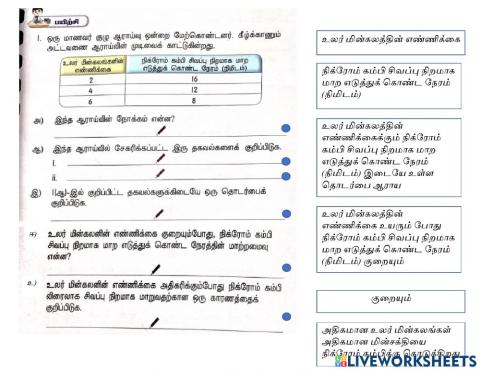 பயிற்சி
1. ஒரு மாணவர் குழு ஆராய்வு ஒன்றை மேற்கொண்டனர். கீழ்க்காணும்
அட்டவணை ஆராய்வின் முடிவைக் காட்டுகின்றது.
உலர் மின்கலங்களின் எண்ணிக்கை
நிக்ரோம் கம்பி சிவப்பு நிறமாக மாற எடுத்துக் கொண்ட நேரம் (நிமிடம்)
2 16
4 12
6 8
அ) இந்த ஆராய்வின் நோக்கம் என்ன?
ஆ) இந்த ஆராய்வில் சேகரிக்கப்பட்ட இரு தகவல்களைக் குறிப்பிடுக.
i.
ii.
இ) 1(ஆ)-இல் குறிப்பிட்ட தகவல்களுக்கிடையே ஒரு தொடர்பைக்
குறிப்பிடுக.
ஈ) உலர் மின்கலனின் எண்ணிக்கை குறையும்போது, நிக்ரோம் கம்பி
சிவப்பு நிறமாக மாற எடுத்துக் கொண்ட நேரத்தின் மாற்றமைவு
என்ன?
உ) உலர் மின்கலனின் எண்ணிக்கை அதிகரிக்கும்போது நிக்ரோம் கம்பி
விரைவாக சிவப்பு நிறமாக மாறுவதற்கான ஒரு காரணத்தைக்
குறிப்பிடுக.
உலர் மின்கலத்தின் எண்ணிக்கை
நிக்ரோம் கம்பி சிவப்பு நிறமாக
மாற எடுத்துக் கொண்ட நேரம்
(நிமிடம்)
உலர் மின்கலத்தின்
எண்ணிக்கைக்கும் நிக்ரோம்
கம்பி சிவப்பு நிறமாக மாற
எடுத்துக் கொண்ட நேரம்
(நிமிடம்) இடையே உள்ள
தொடர்பை ஆராய
உலர் மின்கலத்தின்
எண்ணிக்கை உயரும் போது
நிக்ரோம் கம்பி சிவப்பு நிறமாக
மாற எடுத்துக் கொண்ட நேரம்
(நிமிடம்) குறையும்
குறையும்
அதிகமான உலர் மின்கலங்கள்
அதிகமான மின்சக்தியை
நிக்ரோம் கம்பிக்கு கொடுக்கிறது
LIVEWORKSHEETS